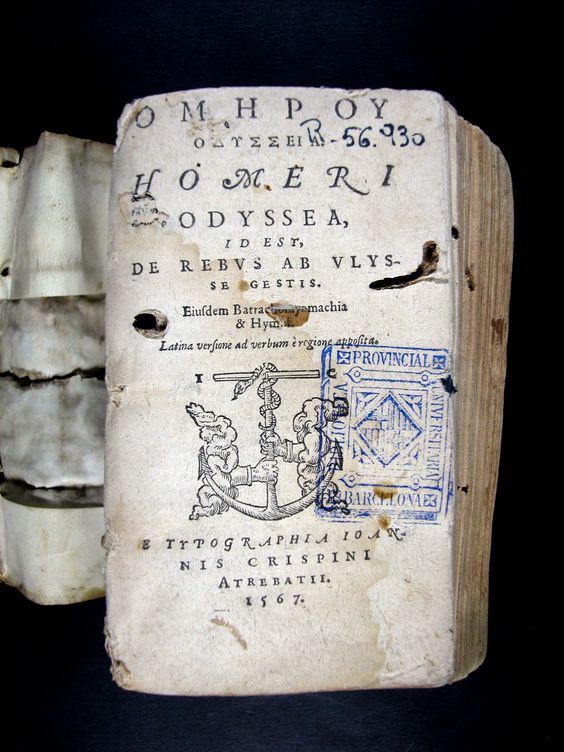 ΟΜΗΡΟΥ
ΟΔΥΣΣΕΙΑ.
B-56.930
HOMERI
ODYSSEA,
ID EST,
DE REBVS AB VLYS-
SE GESTIS.
Eiusdem Batrachomyomachia
& Hymni.
Latina versione ad verbum è regione apposita.
I C
E TYPOGRAPHIA IOAN-
NIS CRISPINI
ATREBATII.
1567.
PROVINCIAL
DE BARCELONA